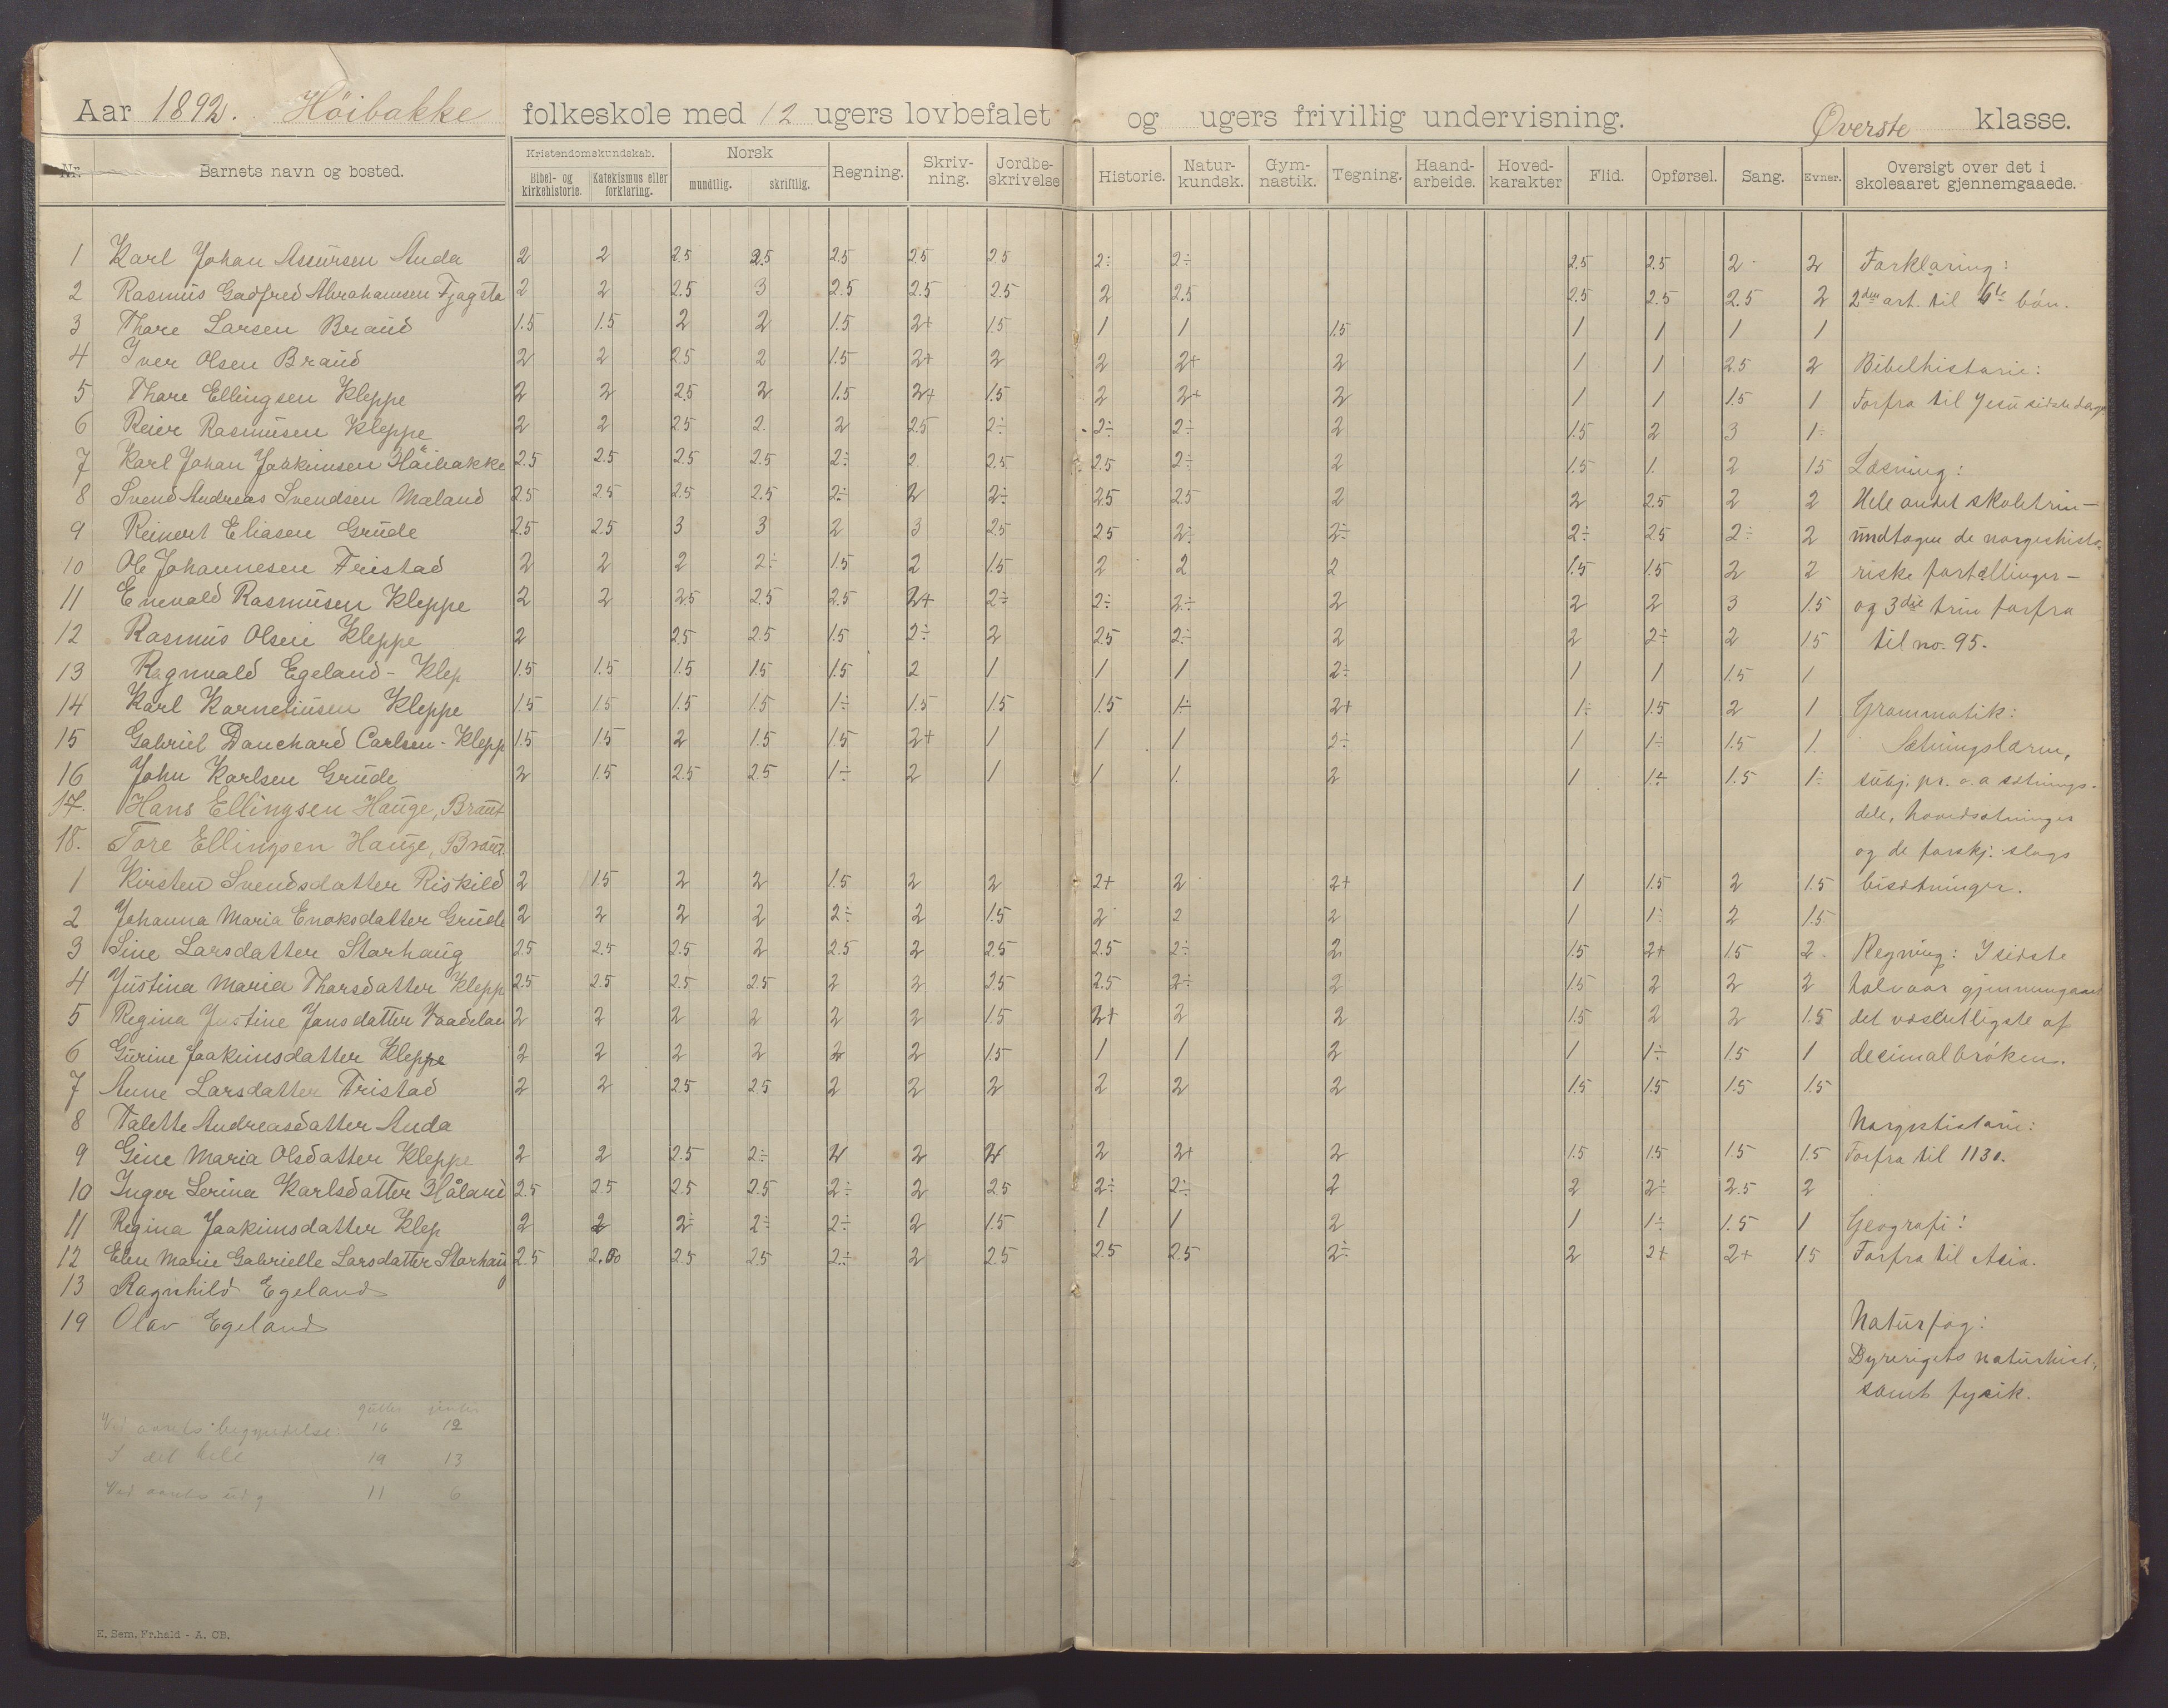 Aar 1892. Höibakke folkeskole med 12 ugers lovbefalet og ugers frivillig undervisning. Øverste klasse.
Nr. Barnets navn og bosted. Kristendomskundskab. Norsk Regning. Skriv- Jordbe- Historie. Natur- Gym- Tegning. Haand- Hoved- Flid. Opførsel. Sang. Evner. Oversigt over det i
Bibel- og Katekismus eller mundtlig. skriftlig. ning. skrivelse kundsk. nastik. arbeide. karakter skoleaaret gjennemgaaede.
kirkehistorie. forklaring.
1 Karl Johan Assursen Anda 2 2 2.5 2.5 2.5 2.5 2.5 2÷ 2÷ 2.5 2.5 2 2 Forklaring:
2 Rasmus Gadfred Abrahamsen 2 2 2.5 3 2.5 2.5 2.5 2 2.5 2.5 2.5 2.5 2 2den art. til 6te bön.
3 Thore Larsen Braud 1.5 1.5 2 2 1.5 2+ 1.5 1 1 1.5 1 1 1 1
4 Iver Olsen Braud 2 2 2.5 2 1.5 2+ 2 2 2+ 2 1 1 2.5 2 Bibelhistorie:
5 Thore Ellingsen Kleppe 2 2 2.5 2 1.5 2+ 1.5 2 2+ 2 1 1 1.5 1 Forfra til Jesu sidste dage
6 Reier Rasmusen Kleppe 2 2 2.5 2. 2 2.5 2÷ 2÷ 2÷ 2 1.5 2 3 1÷
7 Karl Johan Joakimsen Höibakke 2.5 2.5 2.5 2.5 2÷ 2 2.5 2.5 2÷ 2 1.5 1. 2 1.5 Læsning:
8 Svend Andreas Svendsen Maland 2.5 2.5 2.5 2.5 2÷ 2 2÷ 2.5 2.5 2 2 2.5 2 2 Hele andet skoletrin —
9 Reinert Eliasen Grude 2.5 2.5 3 3 2 3 2.5 2.5 2÷ 2÷ 2÷ 2.5 2÷ 2 undtagen de norgeshisto-
10 Ole Johannesen Fristad 2 2 2 2÷ 1.5 2 1.5 2 2 2 1.5 1.5 2 2 riske fortællinger —
11 Enevald Rasmusen Kleppe 2 2 2.5 2.5 2.5 2+ 2÷ 2÷ 2÷ 2 2 2 3 1.5 og 3die trin forfra
12 Rasmus Olsen Kleppe 2 2.5 2.5 1.5 2÷ 2 2.5 2÷ 2 2 2÷ 2 1.5 til no. 95.
13 Ragnvald Egeland - Klep 1.5 1.5 1.5 1.5 1.5 2 1 1 1 2÷ 1 1 1.5 1
14 Karl Korneliusen Kleppe 1.5 1.5 1.5 1.5 1÷ 1.5 1.5 1.5 1÷ 2+ 1÷ 1.5 2 1 Grammatik:
15 Gabriel Danchard Carlsen - Klepp 1.5 1.5 2 1.5 1.5 2+ 1 1 1 2÷ 1 1÷ 1.5 1. Sætningslæren,
16 John Karlsen Grude 2 1.5 2.5 2.5 1÷ 2 1 1 1. 2 1 1÷ 1.5 1÷ subj. pr. o. a sætnings-
17. Hans Ellingsen Hauge, Braut dele, hovedsætninger
18. Tore Ellingsen Hauge, Braut. og de forskj. slags
1 Kirsten Svendsdatter Riskild 2 1.5 2 2 1.5 2 2 2+ 2 2+ 1 1.5 2 1.5 bisætninger.
2 Johanna Maria Enoksdatter Grude 2 2 2 2 2÷ 2 1.5 2 2 2 1 1÷ 2 1.5
3 Sine Larsdatter Storhaug 2.5 2.5 2.5 2 2.5 2 2.5 2.5 2÷ 2 1.5 2+ 1.5 2. Regning: I sidste
4 Justina Maria Thorsdatter Klepp 2.5 2.5 2.5 2.5 2 2 2.5 2.5 2÷ 2 1.5 2 2 2 halvaar gjennemgaaet
5 Regina Justine Jansdatter 2 2 2 2 2 2 1.5 2+ 2 2 1.5 2 2 1.5 det væsentligste af
6 Gurine Joakimsdatter Kleppe 2 2 2 2 2 2 1.5 1 1 2 1 1÷ 1.5 1 decimalbröken.
7 Anne Larsdatter Fristad 2 2 2.5 2.5 2 2 2 2 2 2 1.5 1.5 1.5 1.5
8 Talette Andreasdatter Anda Norgeshistorie:
9 Gine Maria Olsdatter Kleppe 2 2 2.5 2÷ 2 2 2 2 2+ 2 1.5 1.5 1.5 1.5 Forfra til 1130.
10 Inger Serina Karlsdatter Håland 2.5 2.5 2.5 2.5 2÷ 2 2.5 2÷ 2÷ 2 2 2÷ 2.5 2
11 Regina Joakimsdatter Klep 2 2 2÷ 2÷ 2÷ 2 1.5 1 1 2 1 1÷ 1.5 1 Geografi:
12 Elen Marie Gabrielle Larsdatter Storhaug 2.5 2.00 2.5 2.5 2÷ 2 2.5 2.5 2.5 2÷ 2 2+ 2+ 1.5 Forfra til Asia.
13 Ragnhild Egeland
19 Olav Egeland Naturfag:
Dyrerigets naturhist.,
samt fysik.
gutter jenter
Ved aarets begyndelse: 16 12
I det hele 19 13
Ved aarets udg 11 6
E. Sem, Fr.hald - A. CB.